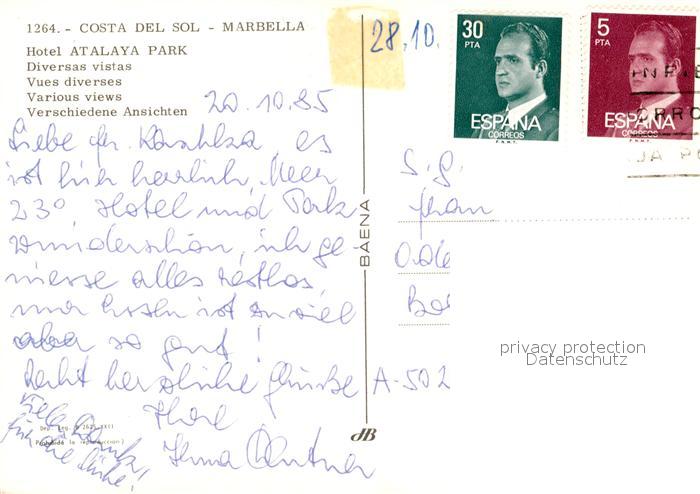 1264. - COSTA DEL SOL - MARBELLA
Hotel ATALAYA PARK
Diversas vistas
Vues diverses
Various views
Verschiedene Ansichten
28.10.
30
PTA
ESPAÑA
CORREOS
F.N.M.T.
5
PTA
ESPAÑA
CORREOS
F.N.M.T.
20.10.85
Liebe Fr. es
ist hier herrlich, Meer
23°, Hotel und Park
wunderschön, ich ge-
niesse alles restlos,
nur Essen ist zu viel
aber so gut!
Recht herzliche Grüsse
Ihre
Irma
Viele Dank
für die Mühe!
BAENA
S. g.
Frau
A-502
privacy protection
Datenschutz
Dep. Leg.
(Prohibida la reproducción)